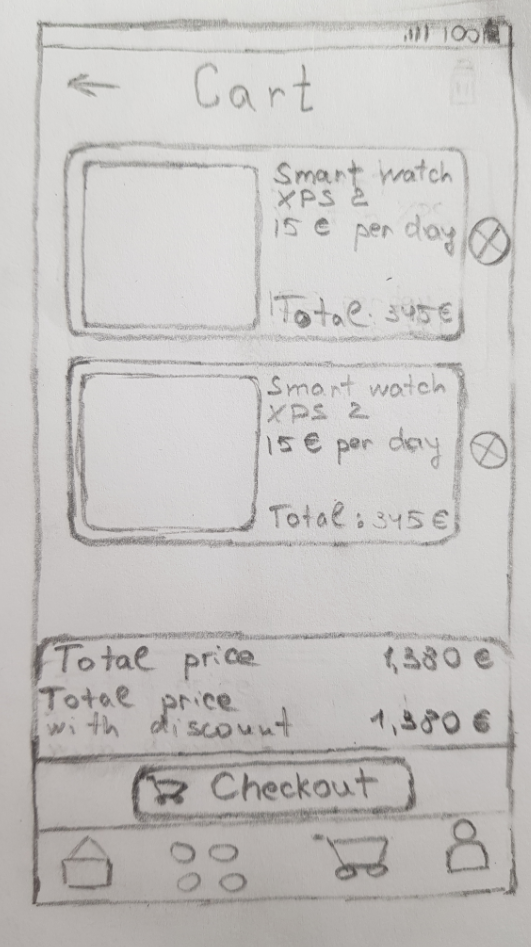 100
Cart
Smart watch
XPS 2
15 € per day
Total: 345€
Smart watch
XPS 2
15 € per day
Total: 345€
Total price 1,380 €
Total price
with discount 1,380 €
Checkout